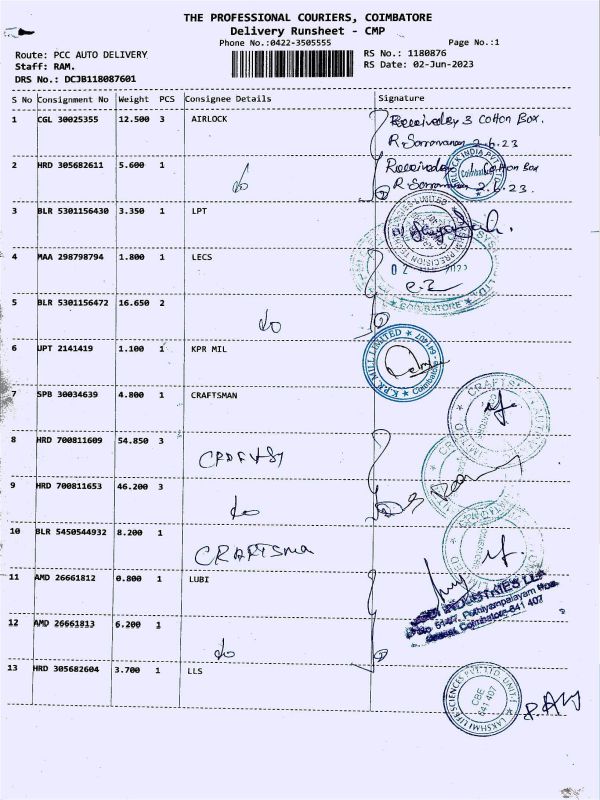 THE PROFESSIONAL COURIERS, COIMBATORE
Delivery Runsheet - CMP
Phone No.:0422-3505555 Page No.:1
Route: PCC AUTO DELIVERY RS No.: 1180876
Staff: RAM. RS Date: 02-Jun-2023
DRS No.: DCJB118087601
S No Consignment No Weight PCS Consignee Details Signature
1 CGL 30025355 12.500 3 AIRLOCK Received 3 Cotton Box.
R. 2.6.23
2 HRD 305682611 5.600 1 do Received Cotton Box
R 2.6.23.
3 BLR 5301156430 3.350 1 LPT
4 MAA 298798794 1.800 1 LECS
COIMBATORE
5 BLR 5301156472 16.650 2 do
6 UPT 2141419 1.100 1 KPR MIL
K.P.R. MILL LIMITED Coimbatore
7 SPB 30034639 4.800 1 CRAFTSMAN
8 HRD 700811609 54.850 3
9 HRD 700811653 46.200 3 do
10 BLR 5450544932 8.200 1 CRAFTSMA
11 AMD 26661812 0.800 1 LUBI
INDUSTRIES LLP
Pothiyampalayam
Coimbatore-641 407
12 AMD 26661813 6.200 1 do
13 HRD 305682604 3.700 1 LLS
LAKSHMI LIFE SCIENCES PVT. LTD. UNIT
CBE
641 407